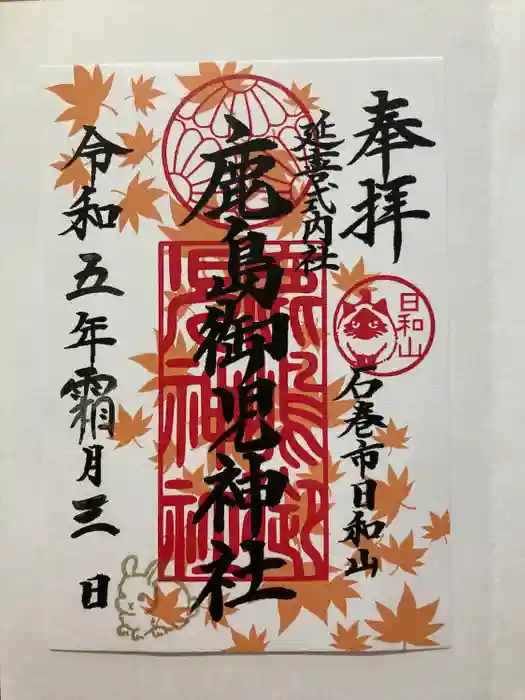 奉拝
延喜式内社
日和山
石巻市日和山
鹿島御児神社
鹿島御児神社
令和五年霜月三日